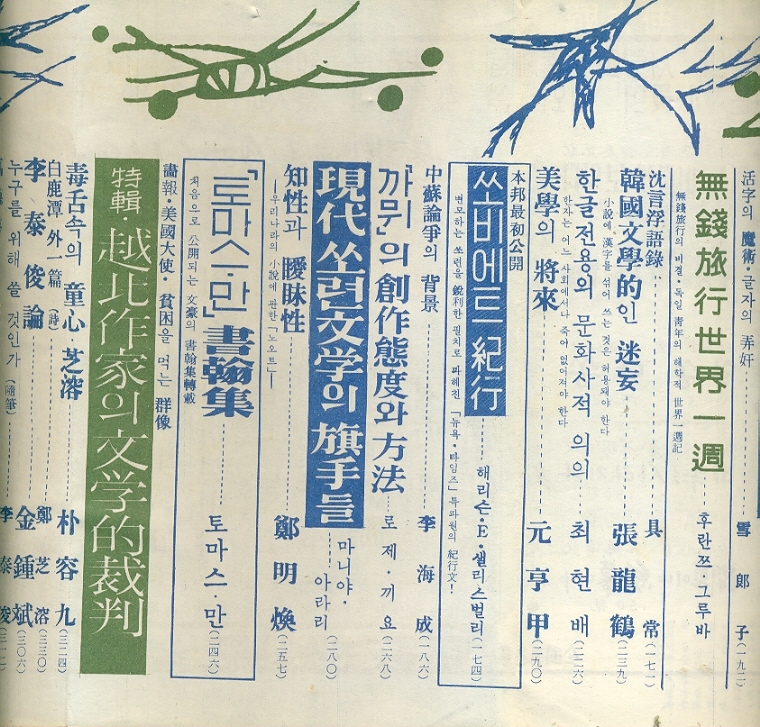 活字의 魔術·글자의 弄奸 雪郎子 (一九二)
無錢旅行世界一週 후란쯔·그루바
無錢旅行의 비결·독일 靑年의 해학적 世界一週記
沈言浮語錄 具常 (一七一)
韓國文學的인 迷妄 張龍鶴 (二三九)
小說에、漢字를 섞어 쓰는 것은 허용돼야 한다
한글전용의 문화사적 의의 최현배 (二二六)
한자는 어느 사회에서나 죽어 없어져야 한다
美學의 將來 元亨甲 (二九〇)
本邦最初公開
쏘비에트 紀行 해리슨·E·샐리스벌리 (一七四)
변모하는 쏘련을 銳利한 필치로 파헤친 「뉴욕·타임즈」特파원의 紀行文!
中蘇論爭의 背景 李海成 (一八六)
「까뮈」의 創作態度와 方法 로제·끼요 (二六八)
現代쏘련文学의 旗手들 마니야·아라리 (二八〇)
知性과 曖昧性 鄭明煥 (二五七)
―우리나라의 小說에 관한 「노오트」―
「토마스·만」書翰集 토마스·만 (二四六)
처음으로 公開되는 文豪의 書翰集轉載
畵報·美國大使·貧困을 먹는 群像
特輯 越北作家의 文学的 裁判
毒舌속의 童心·芝溶 朴容九 (三二四)
白鹿潭 外一篇 (詩) 鄭芝溶 (三三〇)
李泰俊論 金鍾斌 (三〇六)
누구를 위해 쓸 것인가 (隨筆) 李泰俊 (三一二)